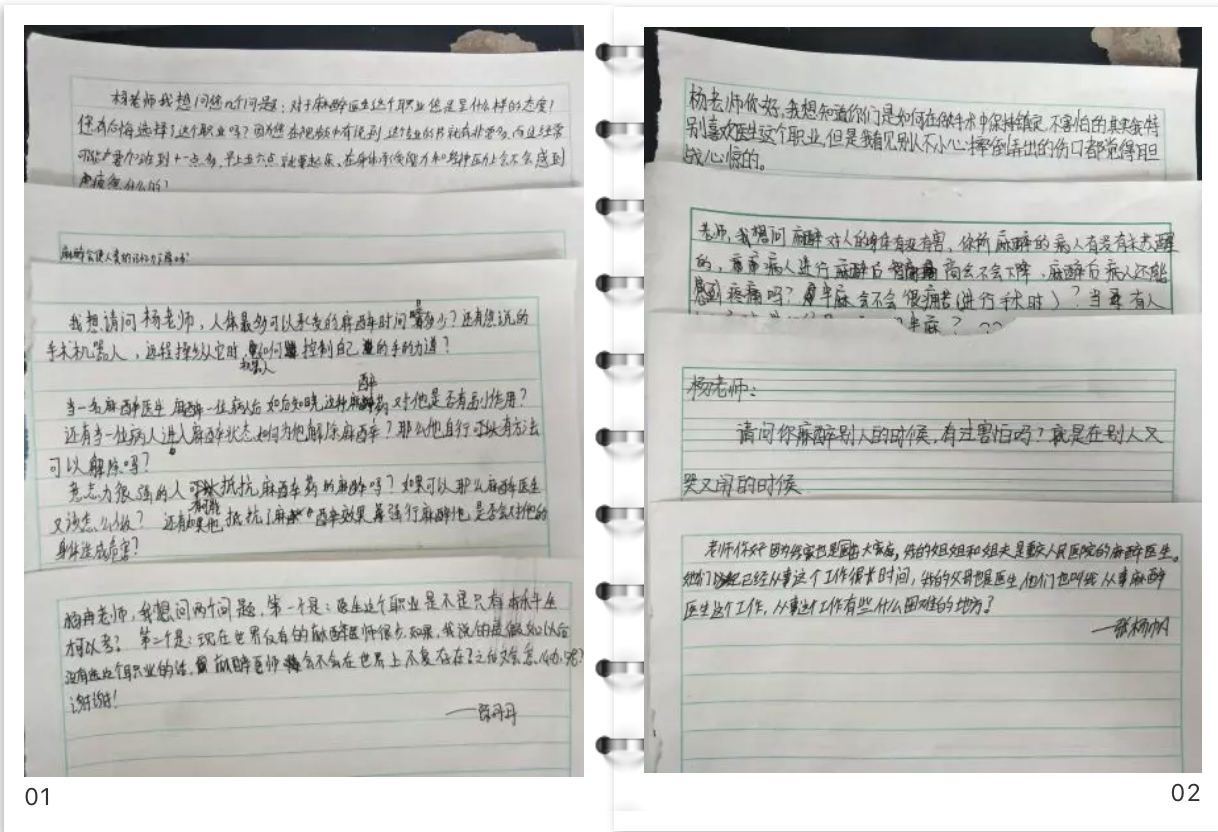 杨老师我想问您几个问题：对于麻醉医生这个职业您是是什么样的态度？
您有后悔选择了这个职业吗？因为您在视频中有说到，这个业的书就有非常多，而且经常
可能要加班到十一点多，早上五六点就要起床，在身体承受能力和精神压力会不会感到
疲惫什么的？
麻醉会使人类的记忆力下降吗？
我想请问杨老师，人体最多可以承受的麻醉时间是多少？还有您说的
手术机器人，远程操纵它时，如何控制自己的手的力道？
机器人
当一名麻醉医生麻醉一位病人后如后如何知晓这种麻醉药对他是否有副作用？
还有当一位病人进入麻醉状态如何为他解除麻醉？那么他自行可以有方法
可以解除吗？
意志力很强的人可以抵抗麻醉药的麻醉吗？如果可以那么麻醉医生
又该怎么做？ 还有如果他抵抗了麻醉效果强行麻醉他是否会对他的
身体造成危害？
杨冉老师，我想问两个问题，第一个是：医生这个职业是不是只有本科生
才可以考？ 第二个是：现在世界仅有的麻醉医师很少，如果，我说的是假如以后
没有这个职业的话，麻醉医师会不会在世界上不复存在？之后又会怎么办呢？
谢谢！
杨老师你好，我想知道你们是如何在做手术中保持镇定，不害怕的其实我特
别喜欢医生这个职业，但是我看见别人不小心摔倒弄出的伤口都觉得胆
战心惊的。
老师，我想问 麻醉对人的身体有没有害，你所麻醉的病人有没有未态醒
的，病人进行麻醉后智商会不会下降，麻醉后病人还能
感到疼痛吗？半麻会不会很痛苦（进行手术时）？当有人
半麻？ ??
杨老师：
请问你麻醉别人的时候，有过害怕吗？就是在别人又
哭又闹的时候
老师你好，因为我家也是国医大家庭，我的姐姐和姐夫是重庆人民医院的麻醉医生。
她们已经从事这个工作很长时间，我的父母也是医生，他们也叫我从事麻醉
医生这个工作，从事这个工作有些什么困难的地方？
01
02